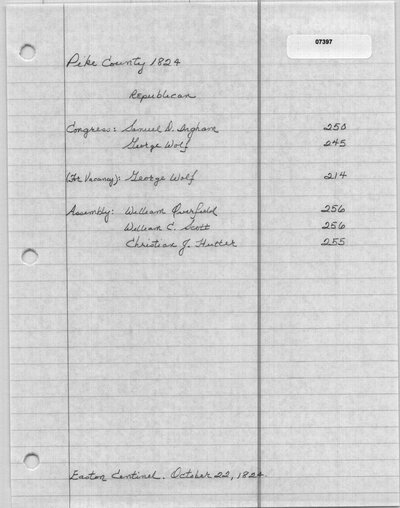 07397
Pike County 1824
Republican
Congress: Samuel D. Ingham 250
George Wolf 245
(For Vacancy): George Wolf 214
Assembly: William Overfield 256
William C. Scott 256
Christian J. Hutter 255
Easton Centinel. October 22, 1824.